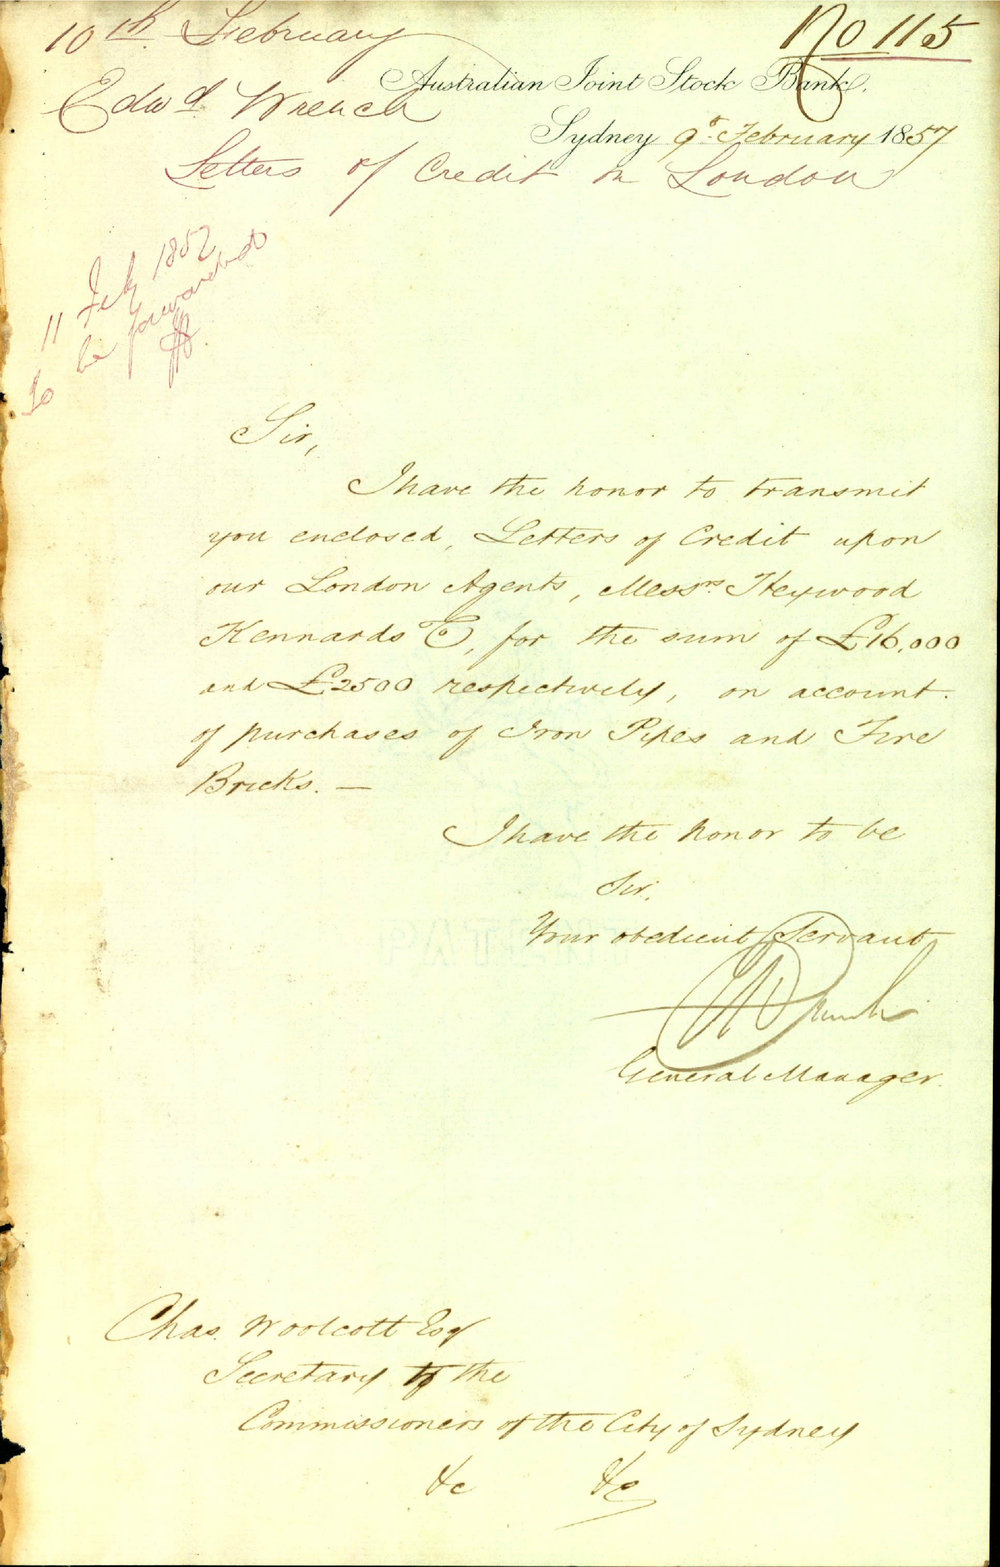 No 115
10th February
Australian Joint Stock Bank.
Edwd Wrench
Sydney 9th February 1857
Letters of Credit in London
11 Feby 1857
To be forwarded
Sir,
I have the honor to transmit
you enclosed, Letters of Credit upon
our London Agents, Messrs. Heywood
Kennards & Co, for the sum of £16,000
and £2500 respectively, on account
of purchases of Iron Pipes and Fire
Bricks. —
I have the honor to be
Sir,
Your obedient Servant
Wrench
General Manager.
Chas. Woolcott Esq
Secretary to the
Commissioners of the City of Sydney
&c &c